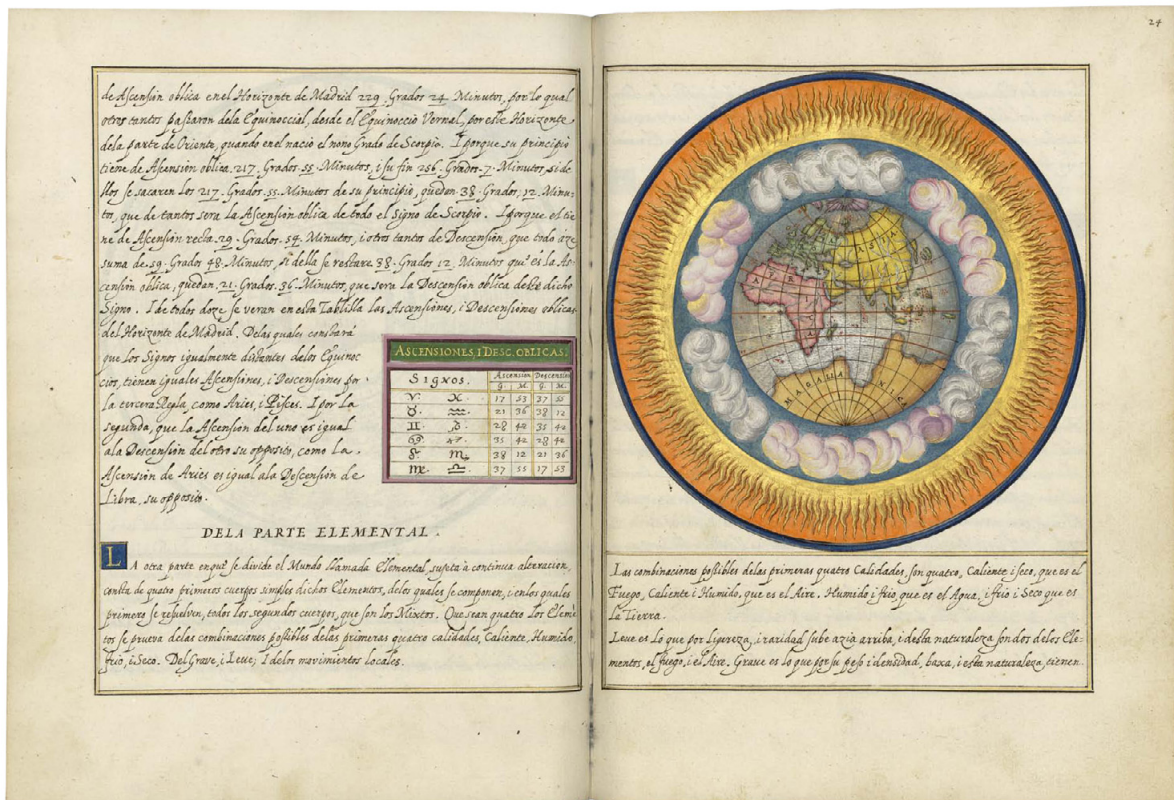 de Ascension oblica en el Horizonte de Madrid 229. Grados 24. Minutos, por lo qual
otros tantos passaron dela Equinoccial, desde el Equinoccio Vernal, por este Horizonte
dela parte de Oriente, quando en el nacio el nono Grado de Scorpio. I porque su principio
tiene de Ascension oblica .217. Grados .55. Minutos, i su fin 256. Grados .7. Minutos, si de
llos se sacaren los 217. Grados .55. Minutos de su principio, quedan .38. Grados, 12. Minu-
tos, que de tantos sera la Ascension oblica de todo el Signo de Scorpio. I porque el tie
ne de Ascension recta .29. Grados .54. Minutos, i otros tantos de Descension, que todo aze
suma de .59. Grados 48. Minutos, si della se restare 38. Grados 12. Minutos que es la As-
cension oblica, quedan .21. Grados .36. Minutos, que sera la Descension oblica deste dicho
Signo. I de todos doze se veran en esta Tablilla las Ascensiones, i Descensiones oblicas
del Horizonte de Madrid. Delas quales constará
que los Signos igualmente distantes delos Equinoc
cios, tienen iguales Ascensiones, i Descensiones por
la tercera Regla, como Aries, i Pisces. I por la
segunda, que la Ascension del uno es igual
ala Descension del otro su opposito, como la
Ascension de Aries es igual ala Descension de
Libra, su opposito.
ASCENSIONES, I DESC. OBLICAS.
Signos. Ascension Descension
G. M. G. M.
♈ ♓ 17 53 37 55
♉ ♒ 21 36 38 12
♊ ♑ 28 42 35 42
♋ ♐ 35 42 28 42
♌ ♏ 38 12 21 36
♍ ♎ 37 55 17 53
DELA PARTE ELEMENTAL.
LA otra parte en que se divide el Mundo llamada Elemental, sujeta à continua alteracion,
consta de quatro primeros cuerpos simples dichos Elementos, delos quales se componen, i en los quales
primero se resuelven, todos los segundos cuerpos, que son los Mixtos. Que sean quatro los Eleme
tos se prueva delas combinaciones possibles delas primeras quatro calidades, Caliente, Humido,
frio, i Seco. Del Grave, i Leve, I delos movimientos locales.
24
ASIA
AFRICA
MAGALLANICA
Las combinaciones possibles delas primeras quatro Calidades, son quatro, Caliente i seco, que es el
Fuego, Caliente i Humido, que es el Aire. Humido i frio, que es el Agua, i frio i Seco que es
la Tierra.
Leve es lo que por ligereza, i raridad sube azia arriba, i desta naturaleza son dos delos Ele-
mentos, el fuego, i el Aire. Grave es lo que por su peso i densidad, baxa, i esta naturaleza tienen